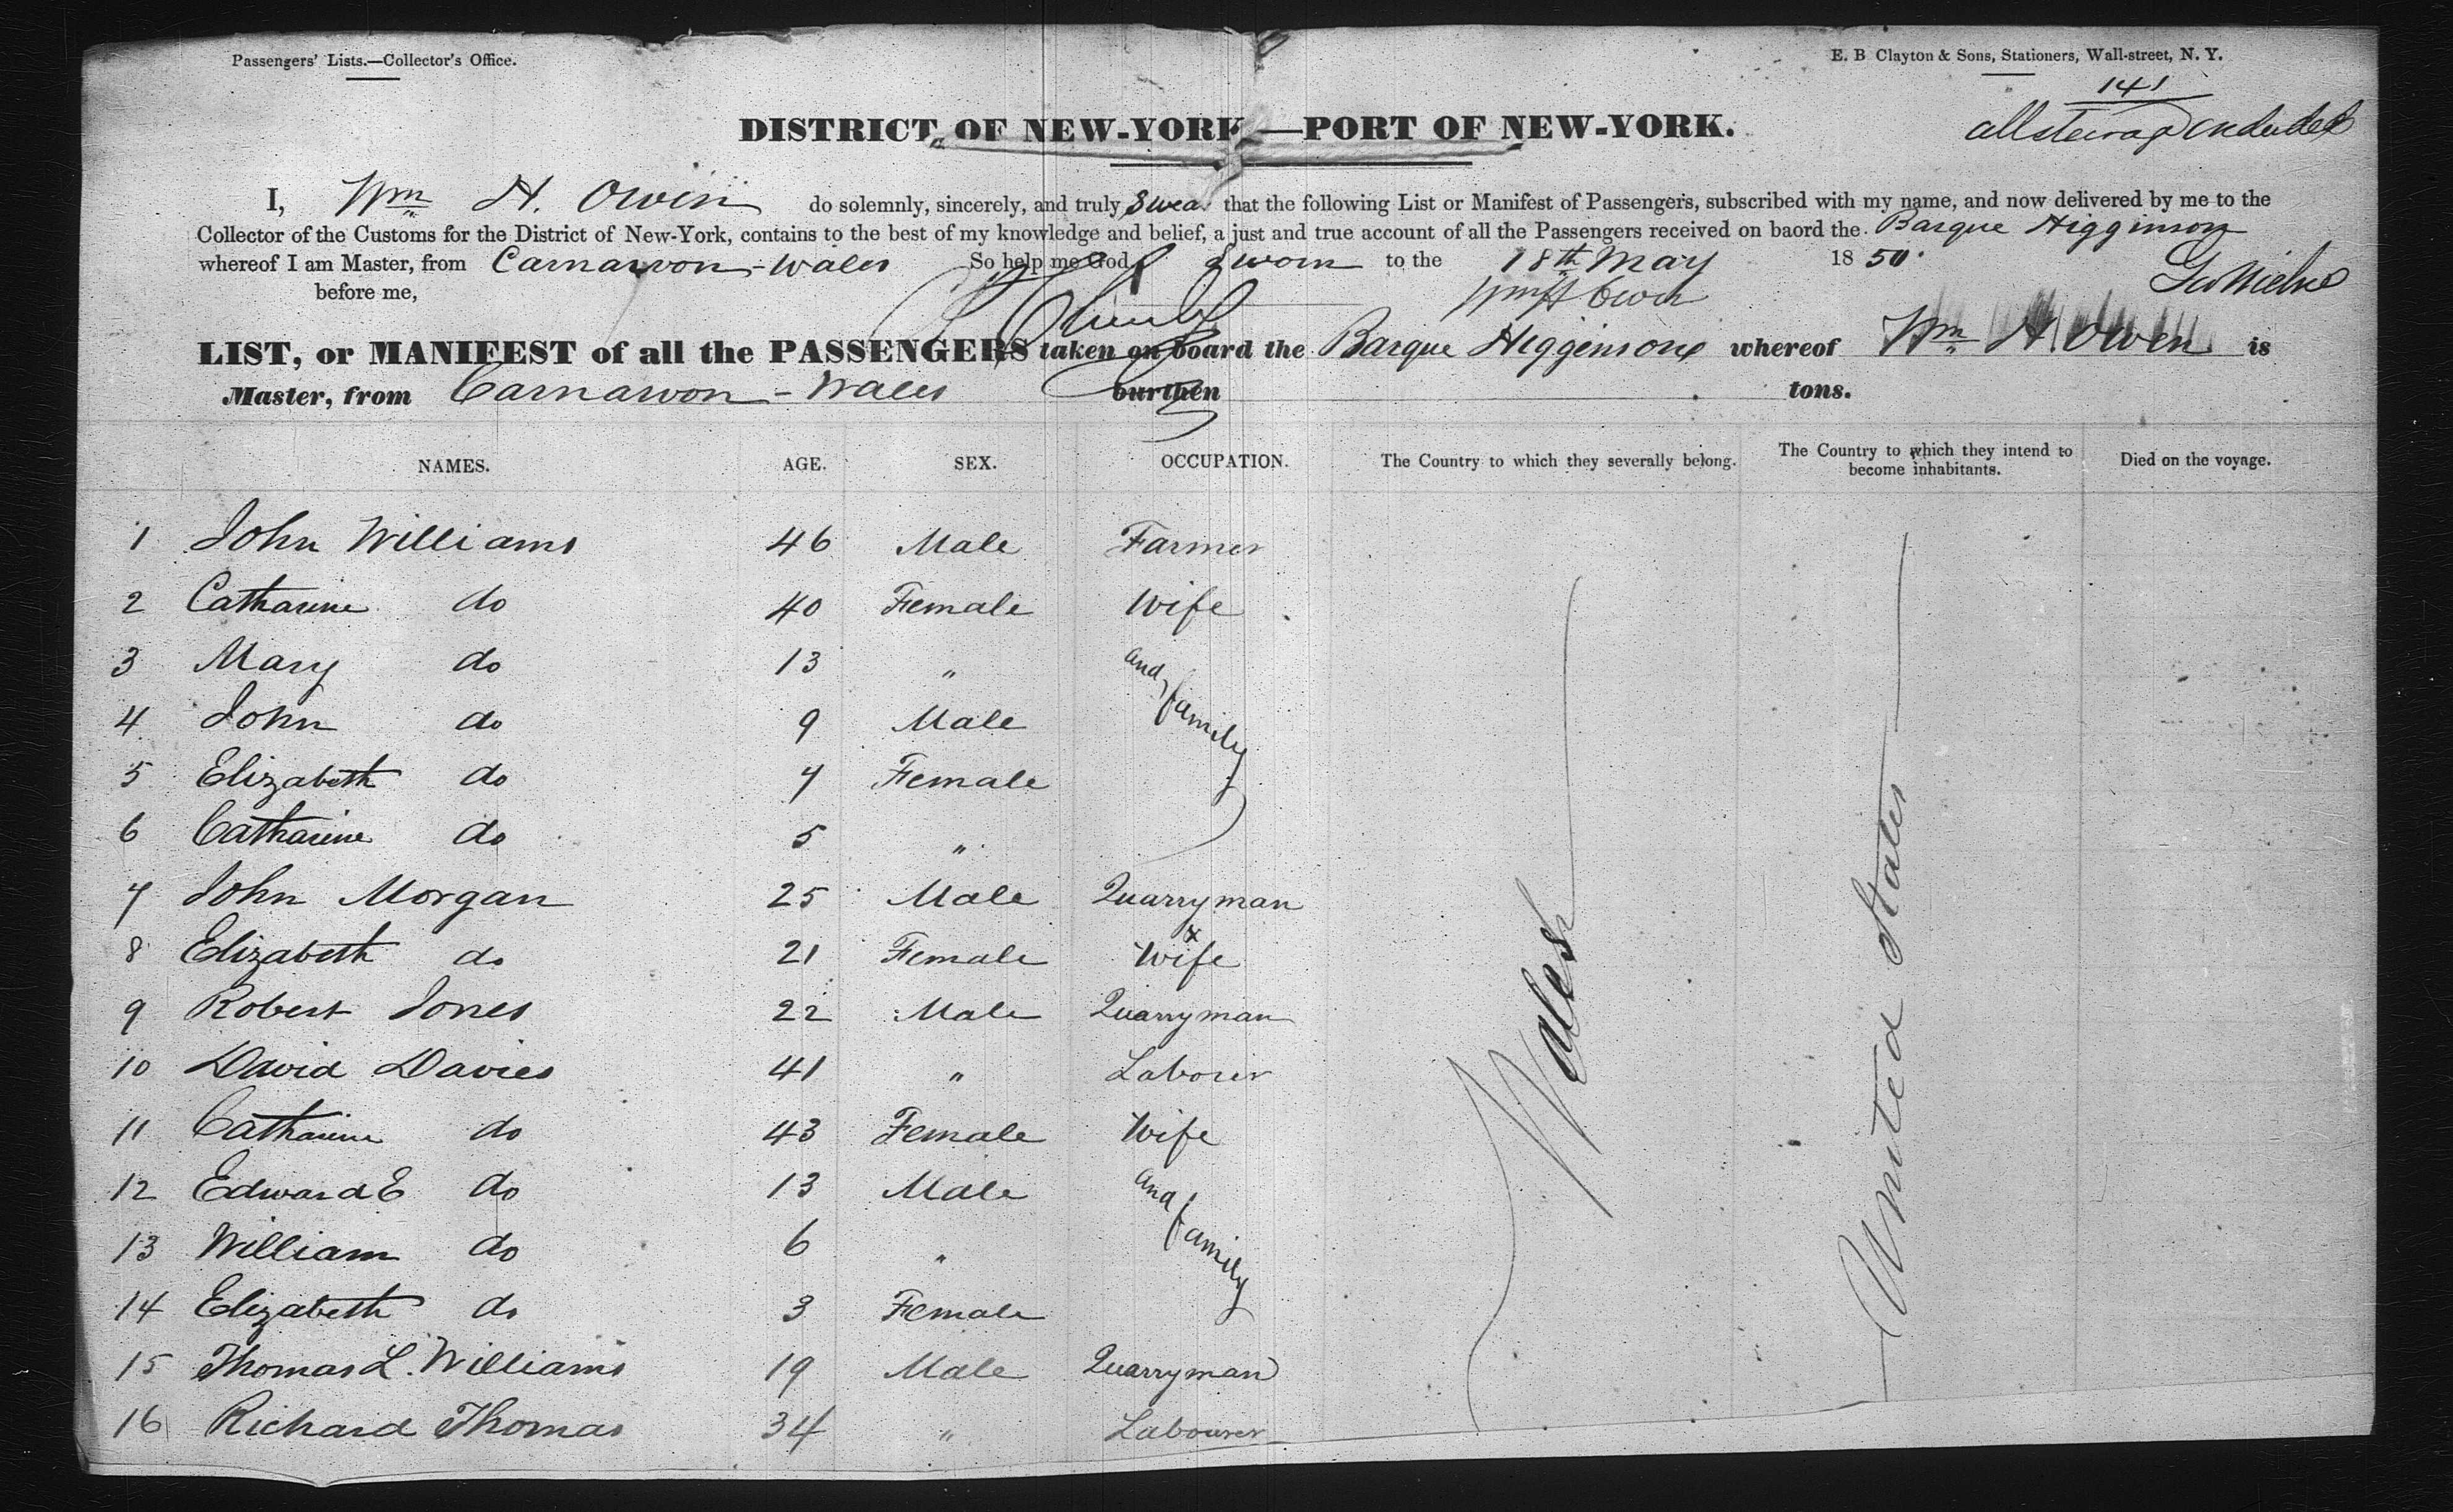 Passengers' Lists.—Collector's Office.
E. B Clayton & Sons, Stationers, Wall-street, N. Y.
141
DISTRICT OF NEW-YORK—PORT OF NEW-YORK.
all steerage
I, Wm H. Owen do solemnly, sincerely, and truly Swear that the following List or Manifest of Passengers, subscribed with my name, and now delivered by me to the
Collector of the Customs for the District of New-York, contains to the best of my knowledge and belief, a just and true account of all the Passengers received on baord the Barque Higginson
whereof I am Master, from Carnarvon - Wales So help me God Sworn to the 18th May 1850.
before me,
Wm H Owen
LIST, or MANIFEST of all the PASSENGERS taken on board the Barque Higginson whereof Wm H. Owen is
Master, from Carnarvon - Wales burthen tons.
NAMES. AGE. SEX. OCCUPATION. The Country to which they severally belong. The Country to which they intend to become inhabitants. Died on the voyage.
1 John Williams 46 Male Farmer
2 Catharine do 40 Female Wife
3 Mary do 13 " and family
4 John do 9 Male
5 Elizabeth do 7 Female
6 Catharine do 5 "
7 John Morgan 25 Male Quarryman
8 Elizabeth do 21 Female Wife x
9 Robert Jones 22 Male Quarryman
10 David Davies 41 " Laborer
11 Catharine do 43 Female Wife
12 Edward E do 13 Male and family
13 William do 6 "
14 Elizabeth do 3 Female
15 Thomas L. Williams 19 Male Quarryman
16 Richard Thomas 34 " Labourer
Wales
United States